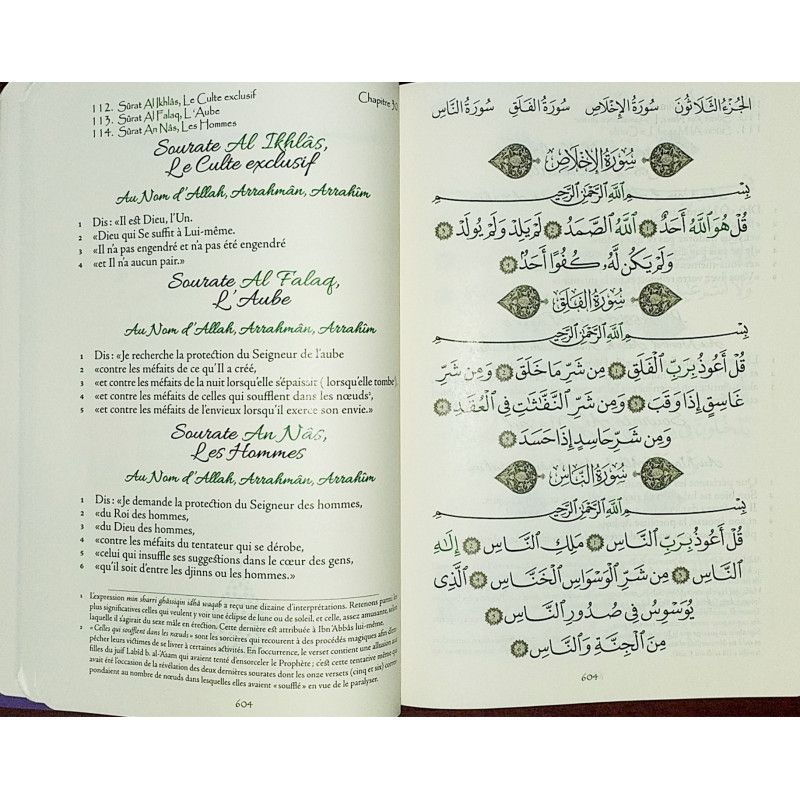 112. Sûrat Al Ikhlâs, Le Culte exclusif
113. Sûrat Al Falaq, L'Aube
114. Sûrat An Nâs, Les Hommes
Chapitre 30
Sourate Al Ikhlâs,
Le Culte exclusif
Au Nom d'Allah, Arrahmân, Arrahîm
1 Dis : «Il est Dieu, l'Un.
2 «Dieu qui Se suffit à Lui-même.
3 «Il n'a pas engendré et n'a pas été engendré
4 «et Il n'a aucun pair.»
Sourate Al Falaq,
L'Aube
Au Nom d'Allah, Arrahmân, Arrahîm
1 Dis : «Je recherche la protection du Seigneur de l'aube
2 «contre les méfaits de ce qu'Il a créé,
3 «et contre les méfaits de la nuit lorsqu'elle s'épaissit ( lorsqu'elle tombe¹,
4 «et contre les méfaits de celles qui soufflent dans les nœuds²,
5 «et contre les méfaits de l'envieux lorsqu'il exerce son envie.»
Sourate An Nâs,
Les Hommes
Au Nom d'Allah, Arrahmân, Arrahîm
1 Dis : «Je demande la protection du Seigneur des hommes,
2 «du Roi des hommes,
3 «du Dieu des hommes,
4 «contre les méfaits du tentateur qui se dérobe,
5 «celui qui insuffle ses suggestions dans le cœur des gens,
6 «qu'il soit d'entre les djinns ou les hommes.»
1 L'expression min sharri ghâssiqin idhâ waqab a reçu une dizaine d'interprétations. Retenons parmi les
plus significatives celles qui veulent y voir une éclipse de lune ou de soleil, et celle, assez amusante, selon
laquelle il s'agirait du sexe mâle en érection. Cette dernière est attribuée à Ibn 'Abbâs lui-même.
2 « Celles qui soufflent dans les nœuds» sont les sorcières qui recourent à des procédés magiques afin d'em-
pêcher leurs victimes de se livrer à certaines activités. En l'occurrence, le verset contient une allusion aux
filles du juif Labîd b. al-'Asam qui avaient tenté d'ensorceler le Prophète ; c'est cette tentative même qui
avait été l'occasion de la révélation des deux dernières sourates dont les onze versets (cinq et six) corres-
pondaient au nombre de nœuds dans lesquelles elles avaient « soufflé » en vue de le paralyser.
604
الجُزْءُ الثَّلَاثُونَ سُورَةُ الإِخْلَاصِ سُورَةُ الفَلَقِ سُورَةُ النَّاسِ
سُورَةُ الإِخْلَاصِ
بِسْمِ ٱللَّهِ ٱلرَّحْمَٰنِ ٱلرَّحِيمِ
قُلْ هُوَ ٱللَّهُ أَحَدٌ ۝١ ٱللَّهُ ٱلصَّمَدُ ۝٢ لَمْ يَلِدْ وَلَمْ يُولَدْ ۝٣
وَلَمْ يَكُن لَّهُۥ كُفُوًا أَحَدٌۢ ۝٤
سُورَةُ الفَلَقِ
بِسْمِ ٱللَّهِ ٱلرَّحْمَٰنِ ٱلرَّحِيمِ
قُلْ أَعُوذُ بِرَبِّ ٱلْفَلَقِ ۝١ مِن شَرِّ مَا خَلَقَ ۝٢ وَمِن شَرِّ
غَاسِقٍ إِذَا وَقَبَ ۝٣ وَمِن شَرِّ ٱلنَّفَّٰثَٰتِ فِى ٱلْعُقَدِ ۝٤
وَمِن شَرِّ حَاسِدٍ إِذَا حَسَدَ ۝٥
سُورَةُ النَّاسِ
بِسْمِ ٱللَّهِ ٱلرَّحْمَٰنِ ٱلرَّحِيمِ
قُلْ أَعُوذُ بِرَبِّ ٱلنَّاسِ ۝١ مَلِكِ ٱلنَّاسِ ۝٢ إِلَٰهِ
ٱلنَّاسِ ۝٣ مِن شَرِّ ٱلْوَسْوَاسِ ٱلْخَنَّاسِ ۝٤ ٱلَّذِى
يُوَسْوِسُ فِى صُدُورِ ٱلنَّاسِ ۝٥
مِنَ ٱلْجِنَّةِ وَٱلنَّاسِ ۝٦
604